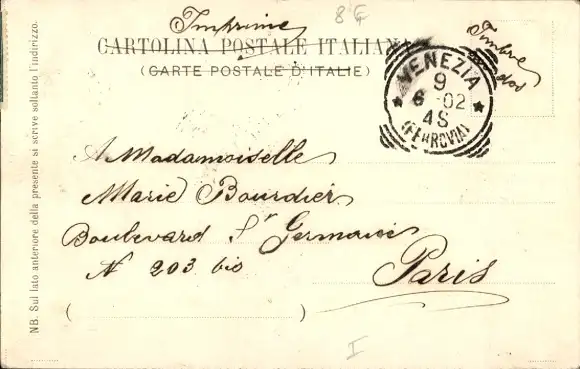 Imprimé
8
CARTOLINA POSTALE ITALIANA
(CARTE POSTALE D'ITALIE)
Timbre
au dos
VENEZIA
9
6-02
4S
(FERROVIA)
A Madamoiselle
Marie Bourdier
Boulevard St Germain
N 203 bis
Paris
( )
NB. Sul lato anteriore della presente si scrive soltanto l'indirizzo.
I